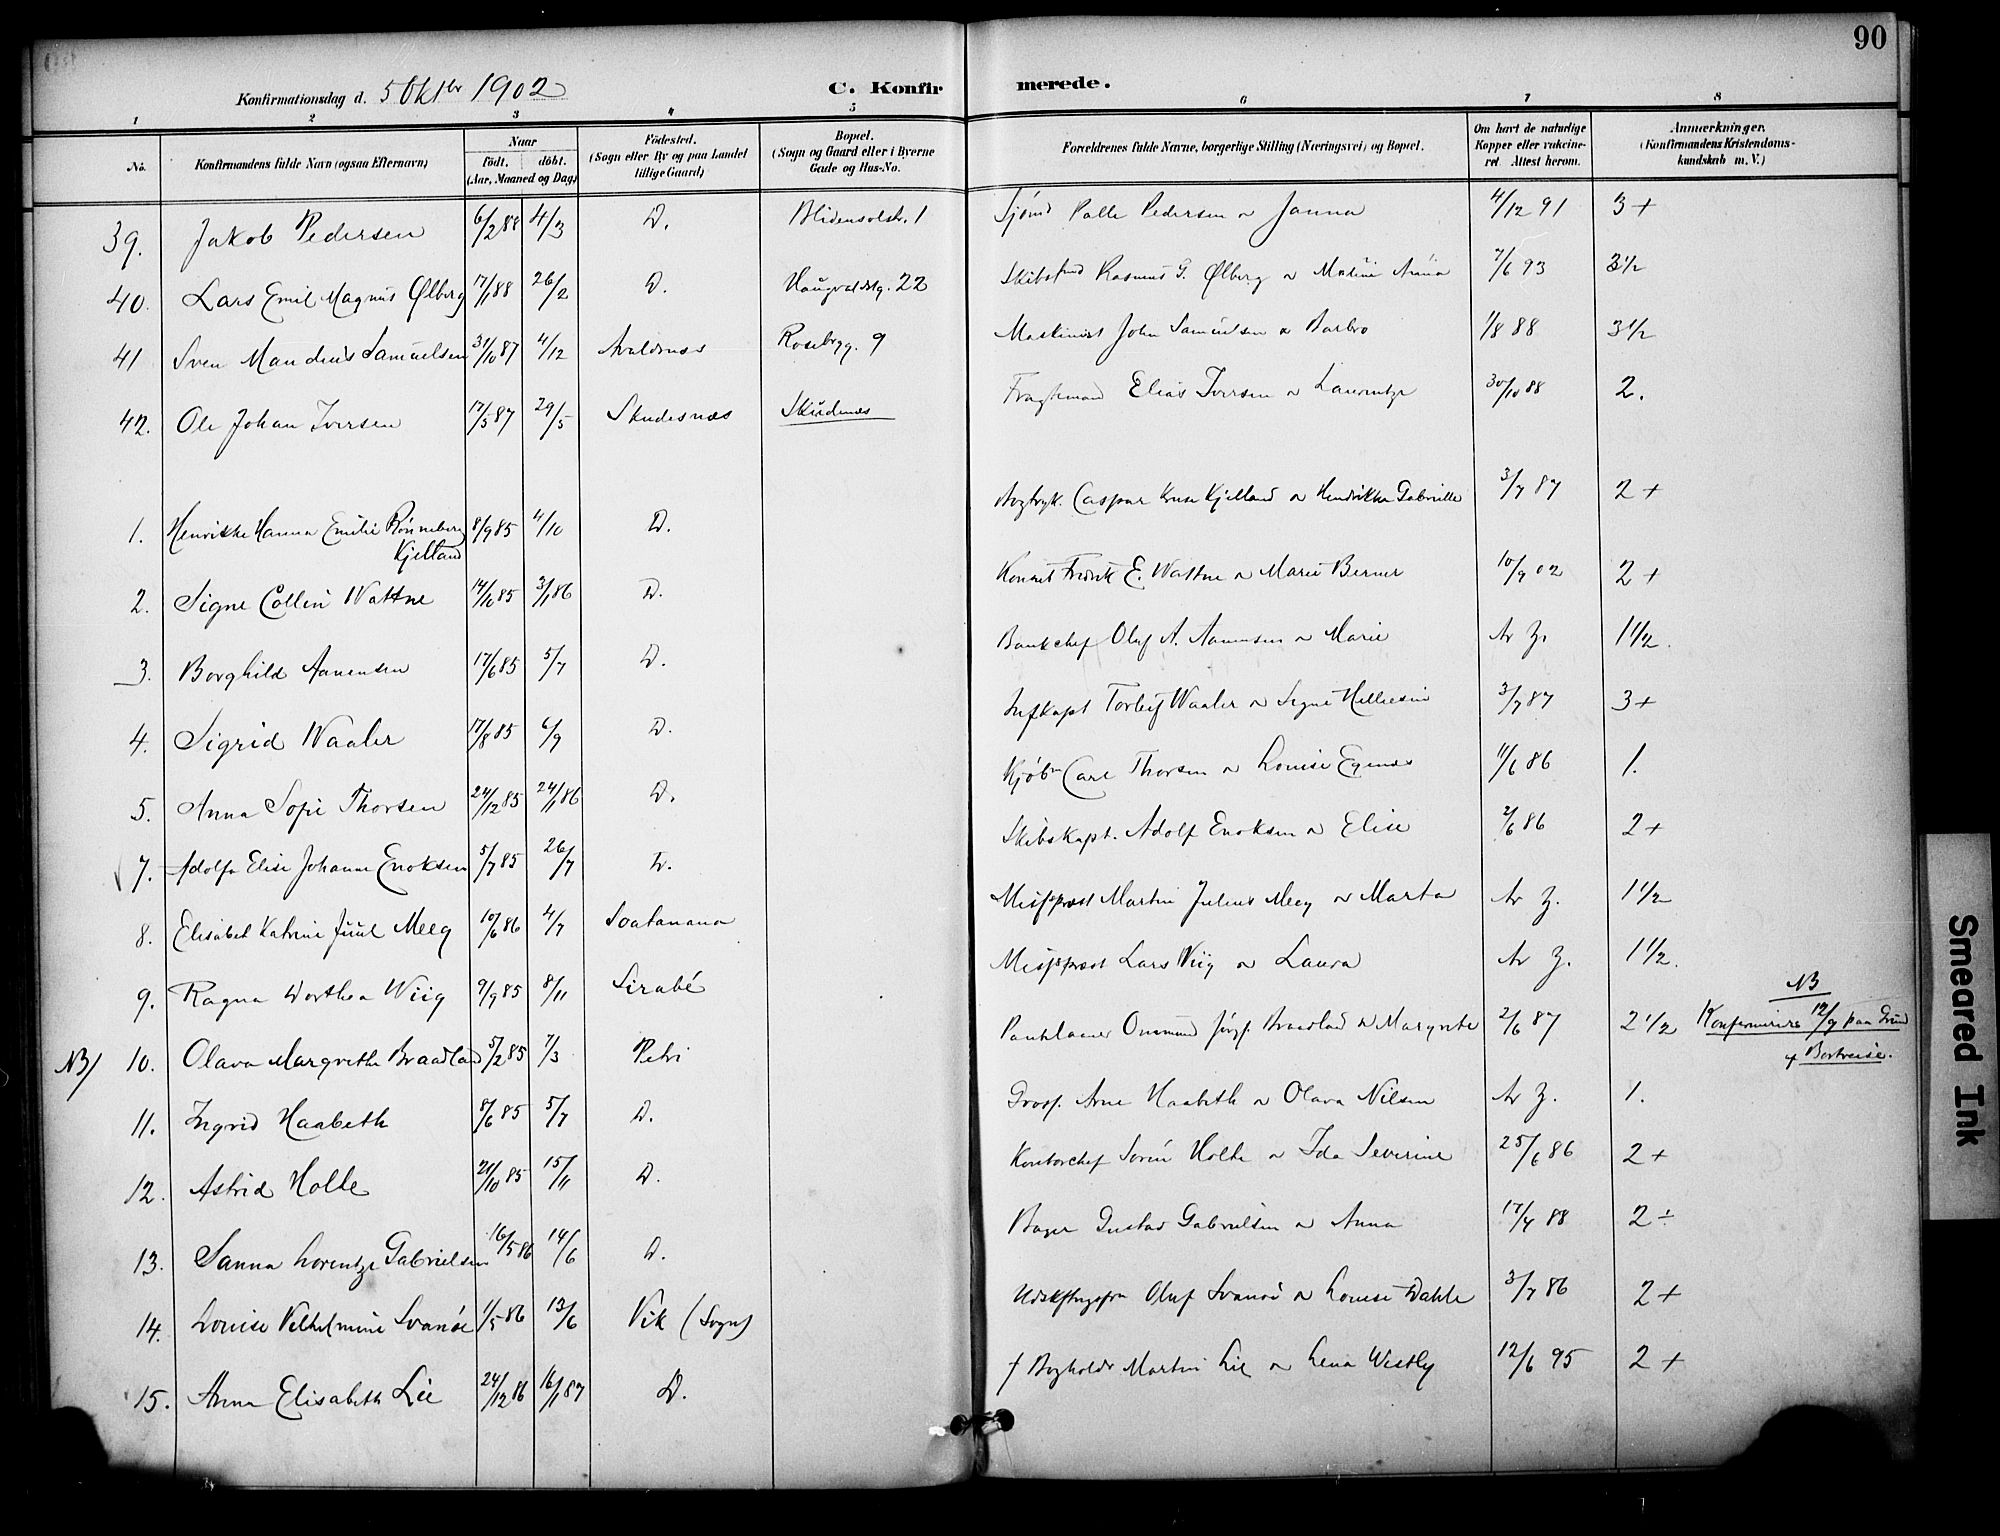 90
Konfirmationsdag d. 5 Oktbr 1902 C. Konfirmerede.
1 2 3 4 5 6 7 8
No. Konfirmandens fulde Navn (ogsaa Efternavn) Naar født. døbt. (Aar, Maaned og Dag) Födested. (Sogn eller By og paa Landet tillige Gaard) Bopæl. (Sogn og Gaard eller i Byerne Gade og Hus-No. Forældrenes fulde Navne, borgerlige Stilling (Næringsvei) og Bopæl. Om havt de naturlige Kopper eller vakcineret. Attest herom. Anmærkninger. (Konfirmandens Kristendomskundskab m. V.)
39. Jakob Pedersen 6/2 88 4/3 D. Blidensolstr. 1 Sjömd Palle Pedersen o Janna 4/12 91 3+
40. Lars Emil Magnus Ølberg 17/1 88 26/2 D. Haugvaldstg. 22 Rasmus G. Ølberg o 7/6 93 3½
41 Sven Mandius Samuelsen 31/10 87 4/12 Avaldsnes Rosebryg. 9 Maskinist John Samuelsen o Barbro 1/8 88 3½
42. Ole Johan Iversen 17/5 87 29/5 Skudesnæs Skudenæs Fragtmand Elias Iversen o Laurentze 30/10 88 2.
1. Henrikke Hanna Emilie Rönneberg Kjelland 8/9 85 4/10 D. Bogtryk. Caspar Kruse Kjelland o Hendrikke Gabrielle 3/7 87 2+
2. Signe Collin Wattne 14/10 85 3/1 86 D. E. Wattne o Marie Berner 10/9 02 2+
3. Borghild Aanensen 17/6 85 5/7 D. Bankchef Oluf A. Aanensen o Marie Av Z. 1½.
4. Sigrid Waaler 17/8 85 6/9 D. Infkapt Torleif Waaler o Signe 3/7 87 3+
5. Anna Sofie Thorsen 24/12 85 24/1 86 D. Kjöbm Carl Thorsen o Louise Egenæs 11/6 86 1.
7. Adolfa Elise Johanne Enoksen 5/7 85 26/7 D. Skibskapt. Adolf Enoksen o Elise 2/6 86 2+
8. Elisabet Katrine Juul Meeg 10/6 86 4/7 Soatanana Missprest Martin Julius Meeg o Marta Av Z. 1½
9. Ragna Dorthea Wiig 9/9 85 8/11 Sirabé Missprest Lars Wiig o Laura Av Z. 1½.
NB/ 10. Olava Margrethe Braadland 5/2 85 7/3 Petri Braadland o Margrete 2/6 87 2½ NB Konfirmeres 12/9 paa Grund af Bortreise.
11. Ingrid Haabeth 8/6 85 5/7 D. Gross. Arne Haabeth o Olava Nilsen Av Z. 1.
12. Astrid Holte 21/10 85 15/11 D. Kontorchef Sören Holte o Ida Severine 25/6 86 2+
13. Sanna Lorentze Gabrielsen 16/5 86 14/6 D. Bager Gustav Gabrielsen o Anna 17/4 88 2÷
14. Louise Vilhelmine Svanöe 11/5 86 13/6 Vik (Sogn) Oluf Svanöe o Louise Dahle 3/7 86 2+
15. Anna Elisabeth Lie 24/12 86 16/1 87 D. f Bogholdr Martin Lie o Lena Westly 12/6 95 2+
Smeared Ink